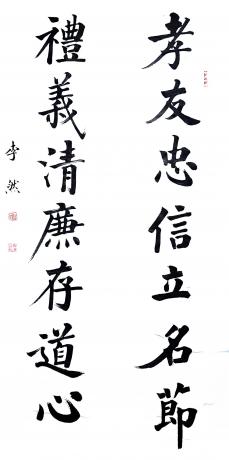 孝友忠信立名節
禮義清廉存道心
李然